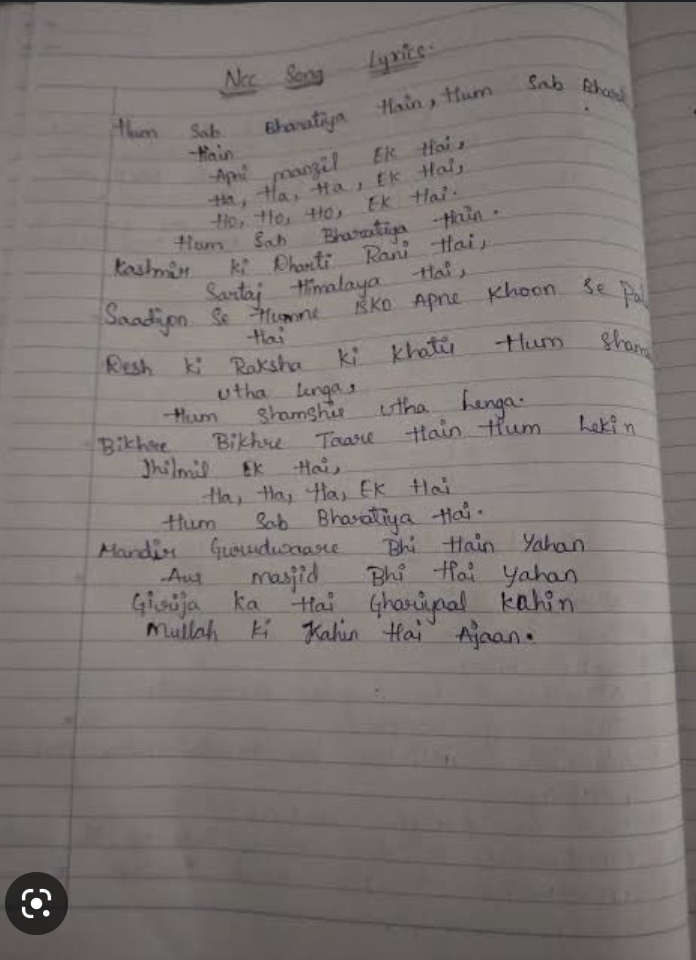 Ncc Song Lyrics.
Hum Sab Bharatiya Hain, Hum Sab
Hain
Apni manzil EK Hai,
Ha, Ha, Ha, EK Hai,
Ho, Ho, Ho, EK Hai.
Hum Sab Bharatiya Hain.
Kashmir ki Dharti Rani Hai,
Sartaj Himalaya Hai,
Saadiyon Se Humne ISKO Apne Khoon Se Pal
Hai
Desh ki Raksha ki Khatir Hum Sham
Utha Lenga,
Hum Shamshir Utha Lenga.
Bikhre Bikhre Taare Hain Hum Lekin
Jhilmil EK Hai,
Ha, Ha, Ha, EK Hai
Hum Sab Bharatiya Hai.
Mandir Gurudwaare Bhi Hain Yahan
Aur masjid Bhi Hai Yahan
Girija ka Hai Ghariyaal Kahin
Mullah ki Kahin Hai Ajaan.